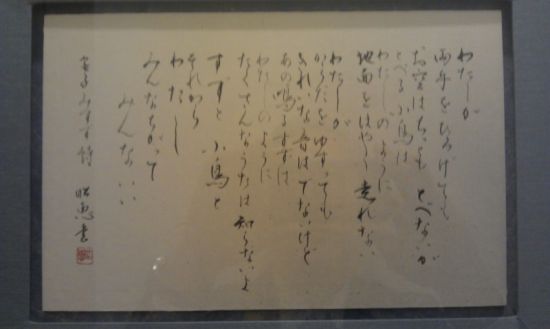 わたしが
両手をひろげても
お空はちっともとべないが
とべる小鳥は
わたしのように
地面をはやく走れない
わたしが
からだをゆすっても
きれいな音はでないけど
あの鳴るすずは
わたしのように
たくさんなうたは知らないよ
すずと 小鳥と
それから
わたし
みんなちがって
みんないい
金子みすゞ詩 昭恵書